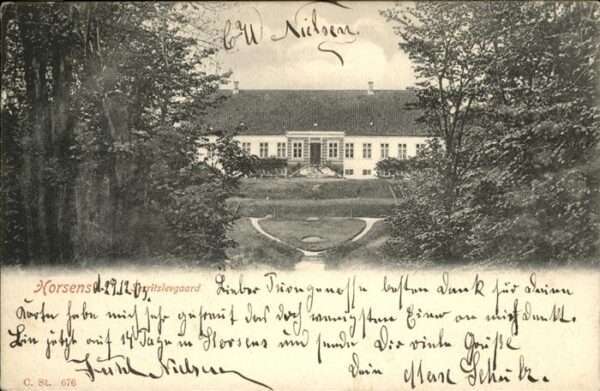 C W Nielsen
Horsens. d. 29.12.03. Serritslevgaard
Lieber Turngenosse besten Dank für Deine
Karte habe mich sehr gefreut das doch wenigsten Einer an mich denkt.
Bin jetzt auf 14 Tage in Horsens und sende Dir viele Grüße
Nielsen Dein Schulz.
C. St. 676